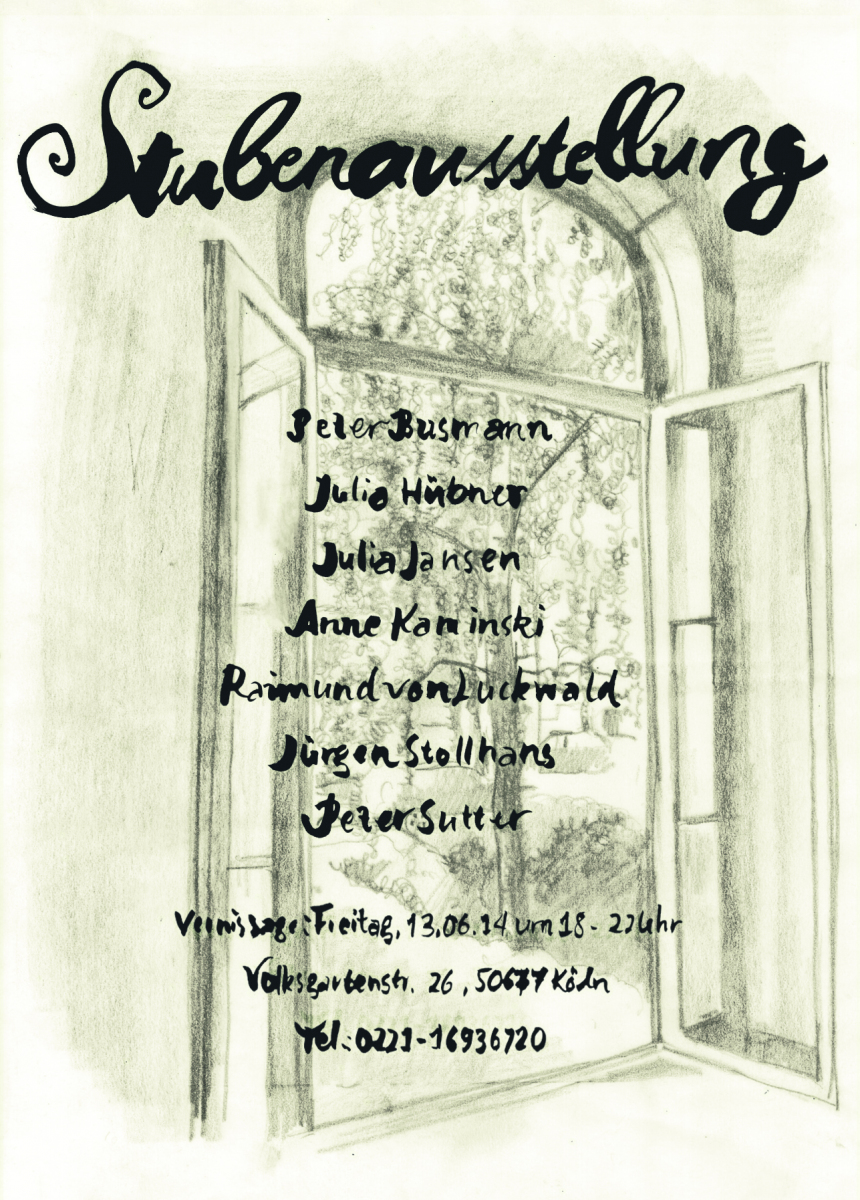 Stubenausstellung
Peter Busmann
Julia Hübner
Julia Jansen
Anne Kaminski
Raimund von Luckwald
Jürgen Stollhans
Peter Sutter
Vernissage: Freitag, 13.06.14 um 18 - 22 Uhr
Volksgartenstr. 26, 50677 Köln
Tel.: 0221-16936720